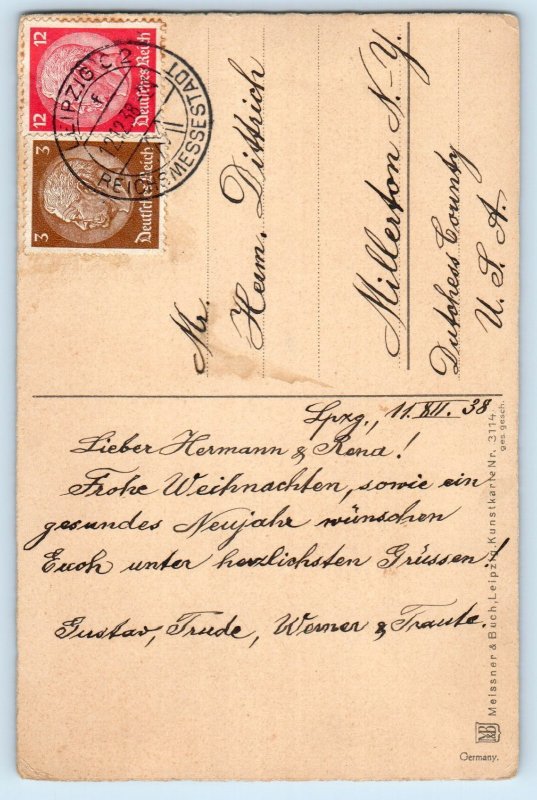 12
Deutsches Reich
12
3
Deutsches Reich
3
LEIPZIG C 2
f
12.12.38
REICHSMESSESTADT
Mr.
Herm. Dittrich
Millerton N-Y.
Dutchess County
U. S. A.
Lpzg., 11. XII. 38
Lieber Hermann & Rena!
Frohe Weihnachten, sowie ein
gesundes Neujahr wünschen
Euch unter herzlichsten Grüssen!
Gustav, Trude, Werner & Traute.
Meissner & Buch, Leipzig, Kunstkarte Nr. 3114.
ges. gesch.
M&B
Germany.